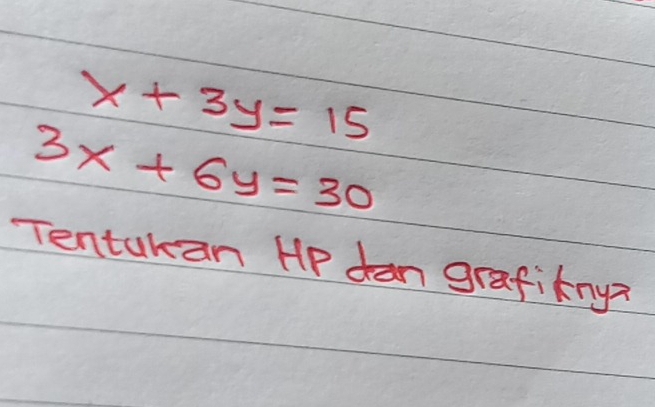 x + 3y = 15
3x + 6y = 30
Tentukan HP dan grafiknya